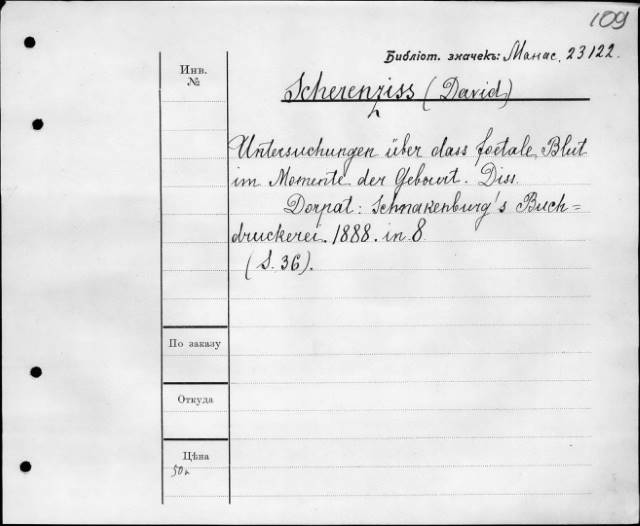 109
Библіот. значекъ: Манас. 23122.
Инв.
№
Scherenziss (David)
Untersuchungen über dass foetale Blut
im Momente der Gebourt. Diss.
Dorpat: Schnakenburg's Buch=
druckerei. 1888. in 8
(S. 36).
По заказу
Откуда
Цѣна
50к